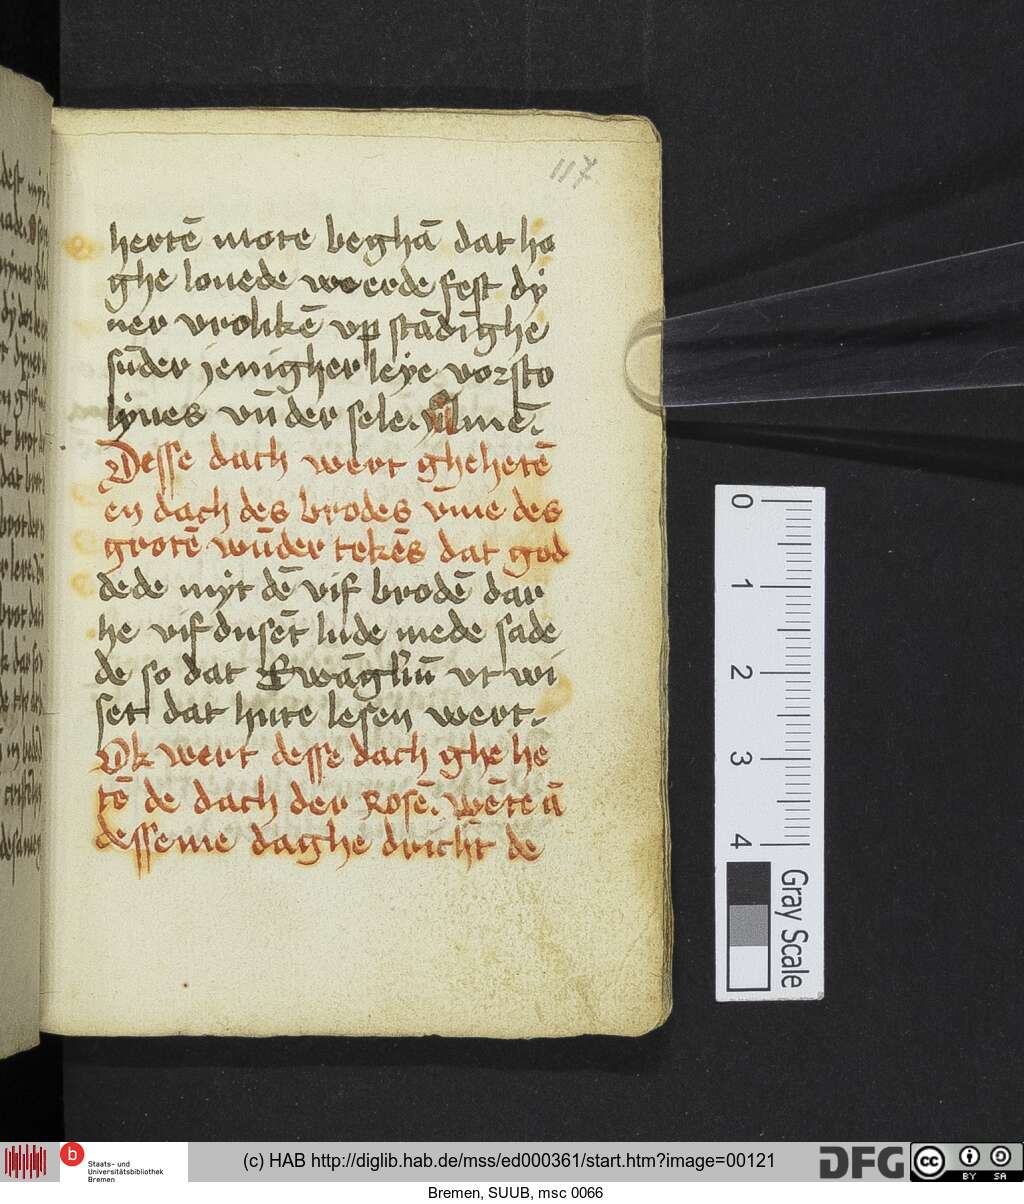 117
hertē mote beghā dat ho
ghe louede werde fest dy
ner vrolikē vp stādīghe
sūder jenigher leye vorsto
lynes vn̄ der sele. Amē.
Desse dach wert ghehetē
en dach des brodes vn̄e des
grotē wūder tekēs dat god
dede myt dē vif brodē dar
he vif dusēt lude mede sade
de so dat Ewāgliū vt wi
set dat hute lesen wert.
Ok wert desse dach ghe he
tē de dach der Rosē. wēte ū
desseme daghe dricht de
0
1
2
3
4
Gray Scale
b
Staats- und
Universitätsbibliothek
Bremen
(c) HAB http://diglib.hab.de/mss/ed000361/start.htm?image=00121
DFG
cc
BY SA
Bremen, SUUB, msc 0066